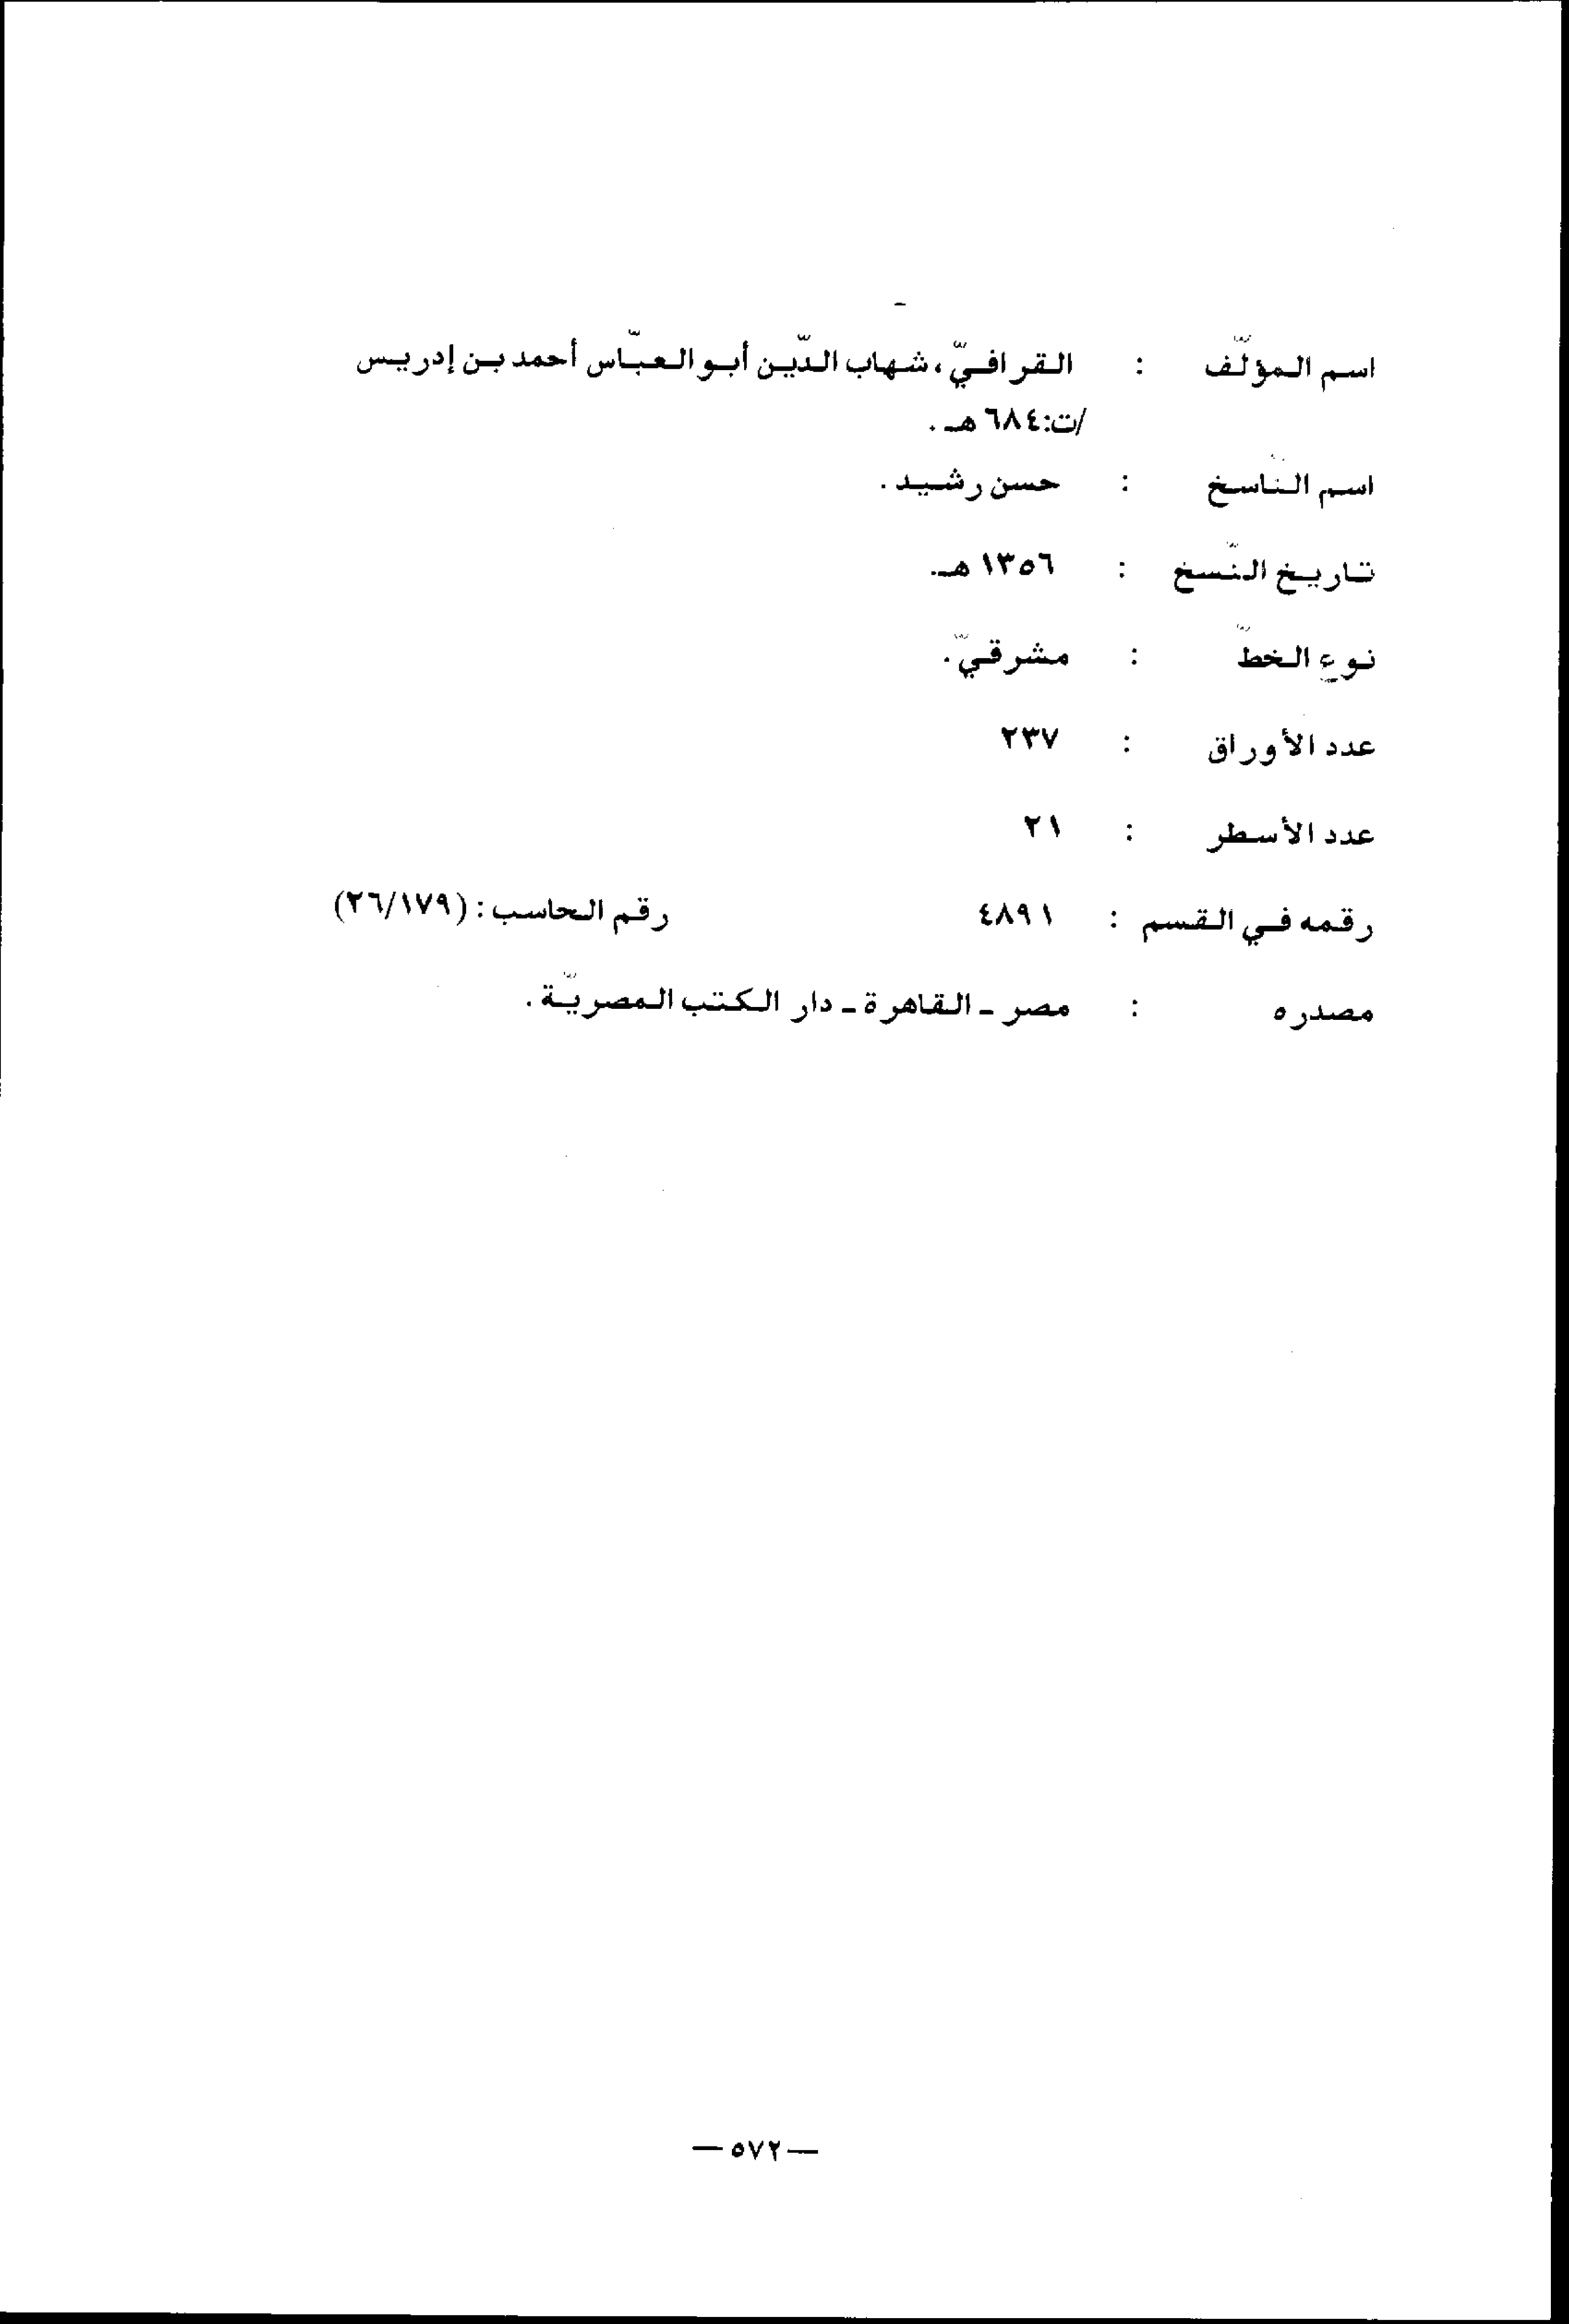 اسم المؤلّف : القرافيّ، شهاب الدّين أبو العبّاس أحمد بن إدريس
/ت:٦٨٤هـ.
اسم النّاسخ : حسن رشيد.
تاريخ النّسخ : ١٣٥٦هـ.
نوع الخطّ : مشرقيّ.
عدد الأوراق : ٢٣٧
عدد الأسطر : ٢١
رقمه في القسم : ٤٨٩١ رقم الحاسب: (٢٦/١٧٩)
مصدره : مصر - القاهرة - دار الكتب المصريّة.
— ٥٧٢ —